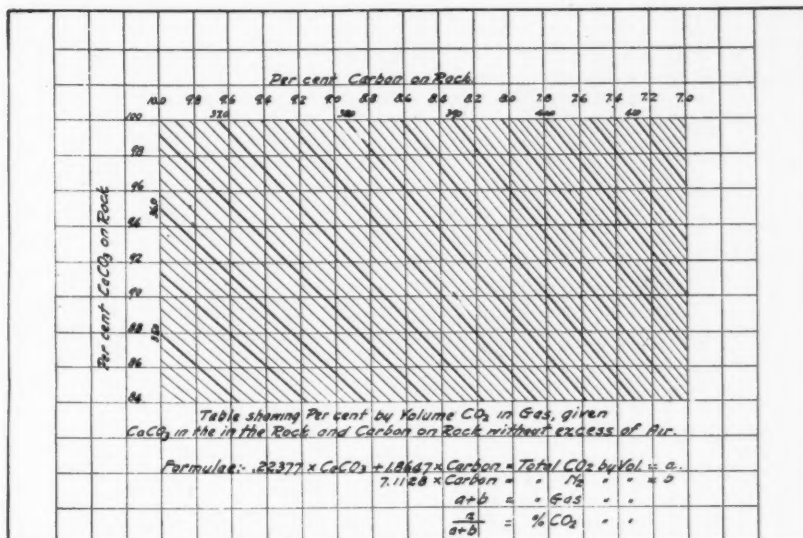 Per cent Carbon on Rock
10.0 9.8 9.6 9.4 9.2 9.0 8.8 8.6 8.4 8.2 8.0 7.8 7.6 7.4 7.2 7.0
37.0 38.0 39.0 40.0 41.0
100
98
96
36.0
94
92
90
88
86
84
Per cent CaCO₃ on Rock
Table showing Per cent by Volume CO₂ in Gas, given
CaCO₃ in the in the Rock and Carbon on Rock without excess of Air.
Formulae:- .22377 × CaCO₃ + 1.8647 × Carbon = Total CO₂ by Vol. = a.
7.1128 × Carbon = " N₂ " " =
a+b = " Gas " "
a
a+b = % CO₂ " "